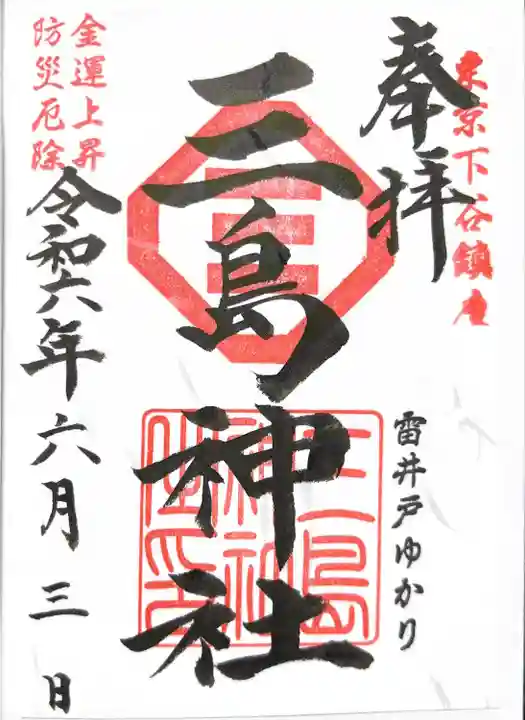 東京下谷鎮座
奉拝
雷井戸ゆかり
三島神社
三島神社之印
金運上昇
防災厄除
令和六年六月三日